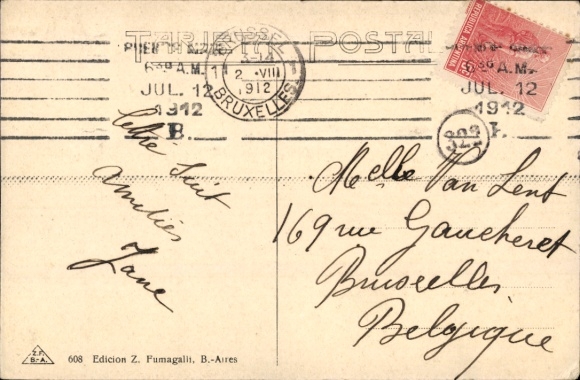 TARJETA POSTAL
REPUBLICA ARGENTINA
6 30 A.M.
JUL. 12
1912
B.
BRUSSEL
3-14
1 2 -VIII
1912
BRUXELLES
6 30 A.M.
JUL. 12
1912
322
Lettre suit
amitiés
Jane
Melle Van Lent
169 rue Gaucheret
Bruxelles
Belgique
Z.F.
B.-A.
608 Edicion Z. Fumagalli, B.-Aires